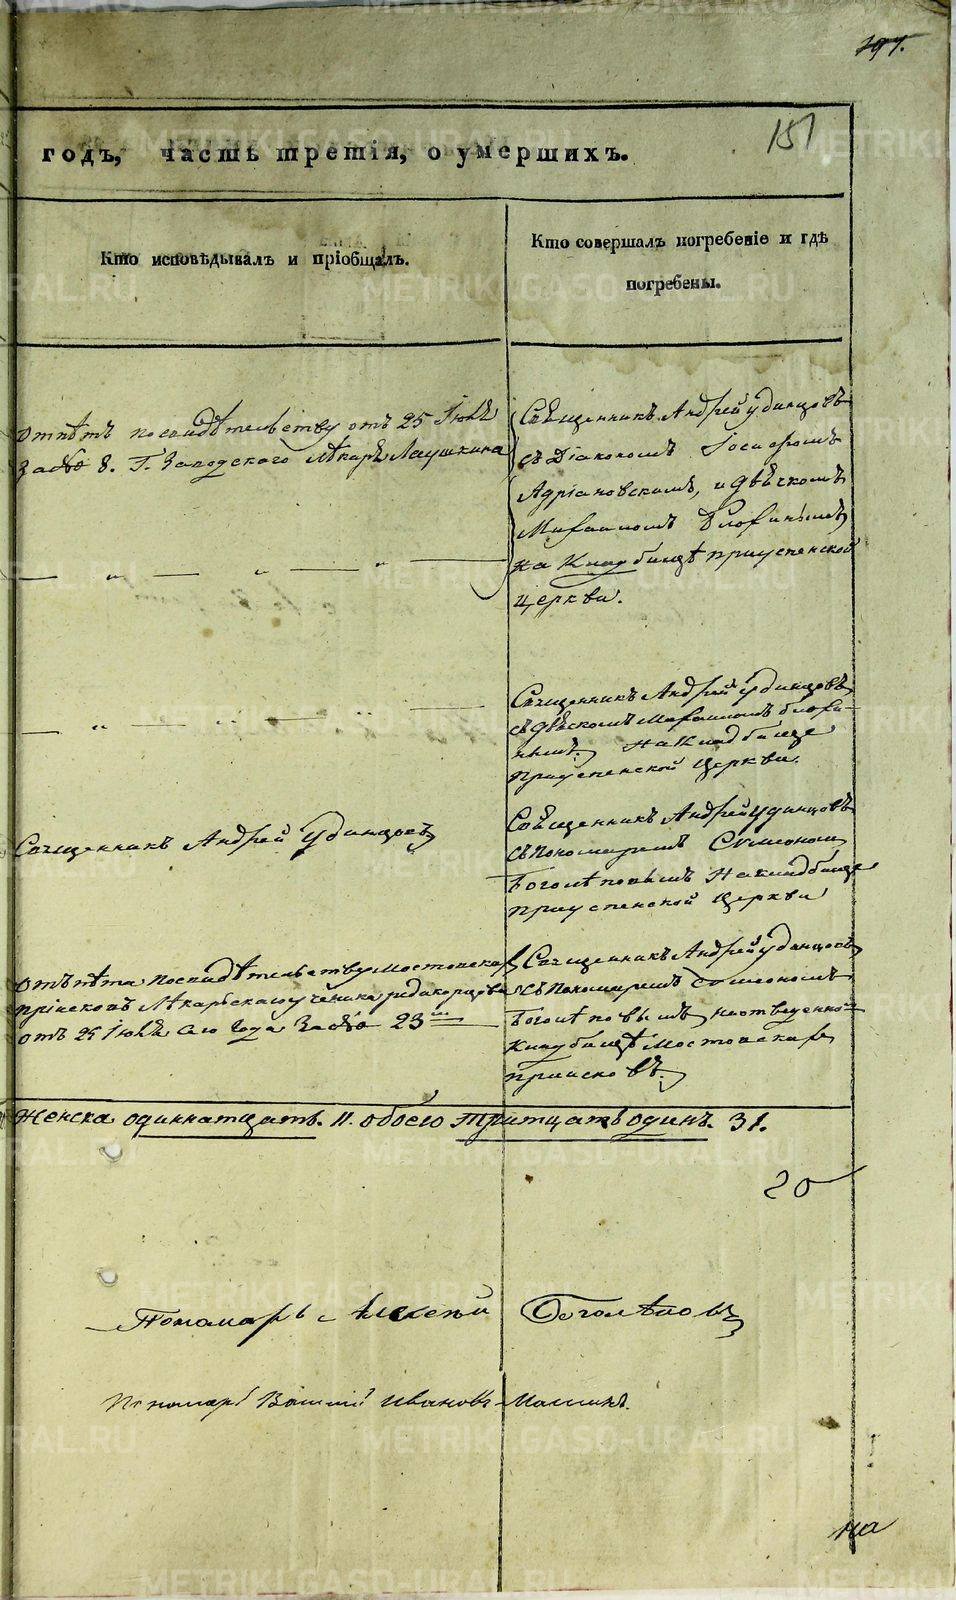 191.
151
годъ, часть третія, о умершихъ.
Кто исповѣдывалъ и пріобщалъ.
Кто совершалъ погребеніе и гдѣ
погребены.
Отпѣтъ по свидѣтельству отъ 25 Іюля
За № 8. Г. Заводского Лѣкаря Лаушкина
Священникъ Андрей Удинцовъ
съ Діакономъ Іосифомъ
Адріановскимъ, и дьячкомъ
Михаиломъ
на Кладбищѣ приуспенской
церкви.
Священникъ Андрей Удинцовъ
съ дьячкомъ Михаиломъ
на Кладбище
Приуспенской Церкви.
Священникъ Андрей Удинцовъ
Священникъ Андрей Удинцовъ
съ пономаремъ Симеономъ
Боголѣповымъ На кладбище
приуспенской Церкви
Отъпѣта по свидѣтельству Мостовскихъ
пріисковъ Лѣкарскаго ученика
отъ 25 Іюля сего Года За № 23м
Священникъ Андрей Удинцовъ
съ Пономаремъ Симеономъ
Боголѣповымъ на отведенно-
Кладбищѣ Мостовскихъ
приисковъ.
Женска одиннатцать. 11. обоего тритцать одинъ. 31.
20
Пономарь Алексей Боголѣповъ
Пономарь Василий Ивановъ
на
METRIKI.GASO-URAL.RU